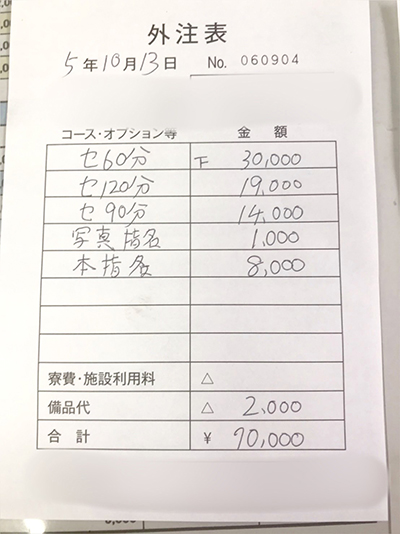 外注表
5年10月13日 No. 060904
コース・オプション等 金 額
セ60分 下 30,000
セ120分 19,000
セ90分 14,000
写真指名 1,000
本指名 8,000
寮費・施設利用料 △
備品代 △ 2,000
合 計 ¥ 70,000